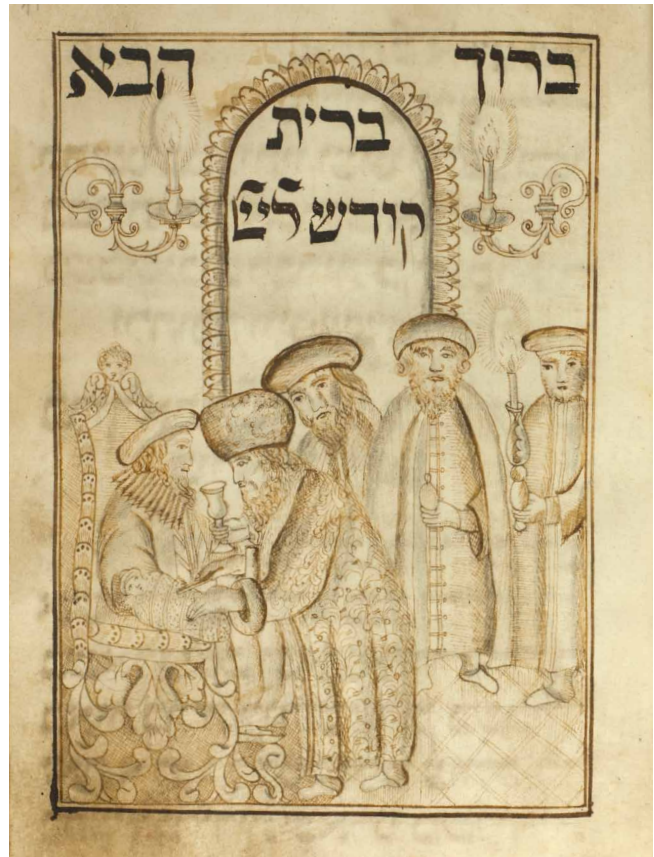 ברוך הבא
ברית
קודש